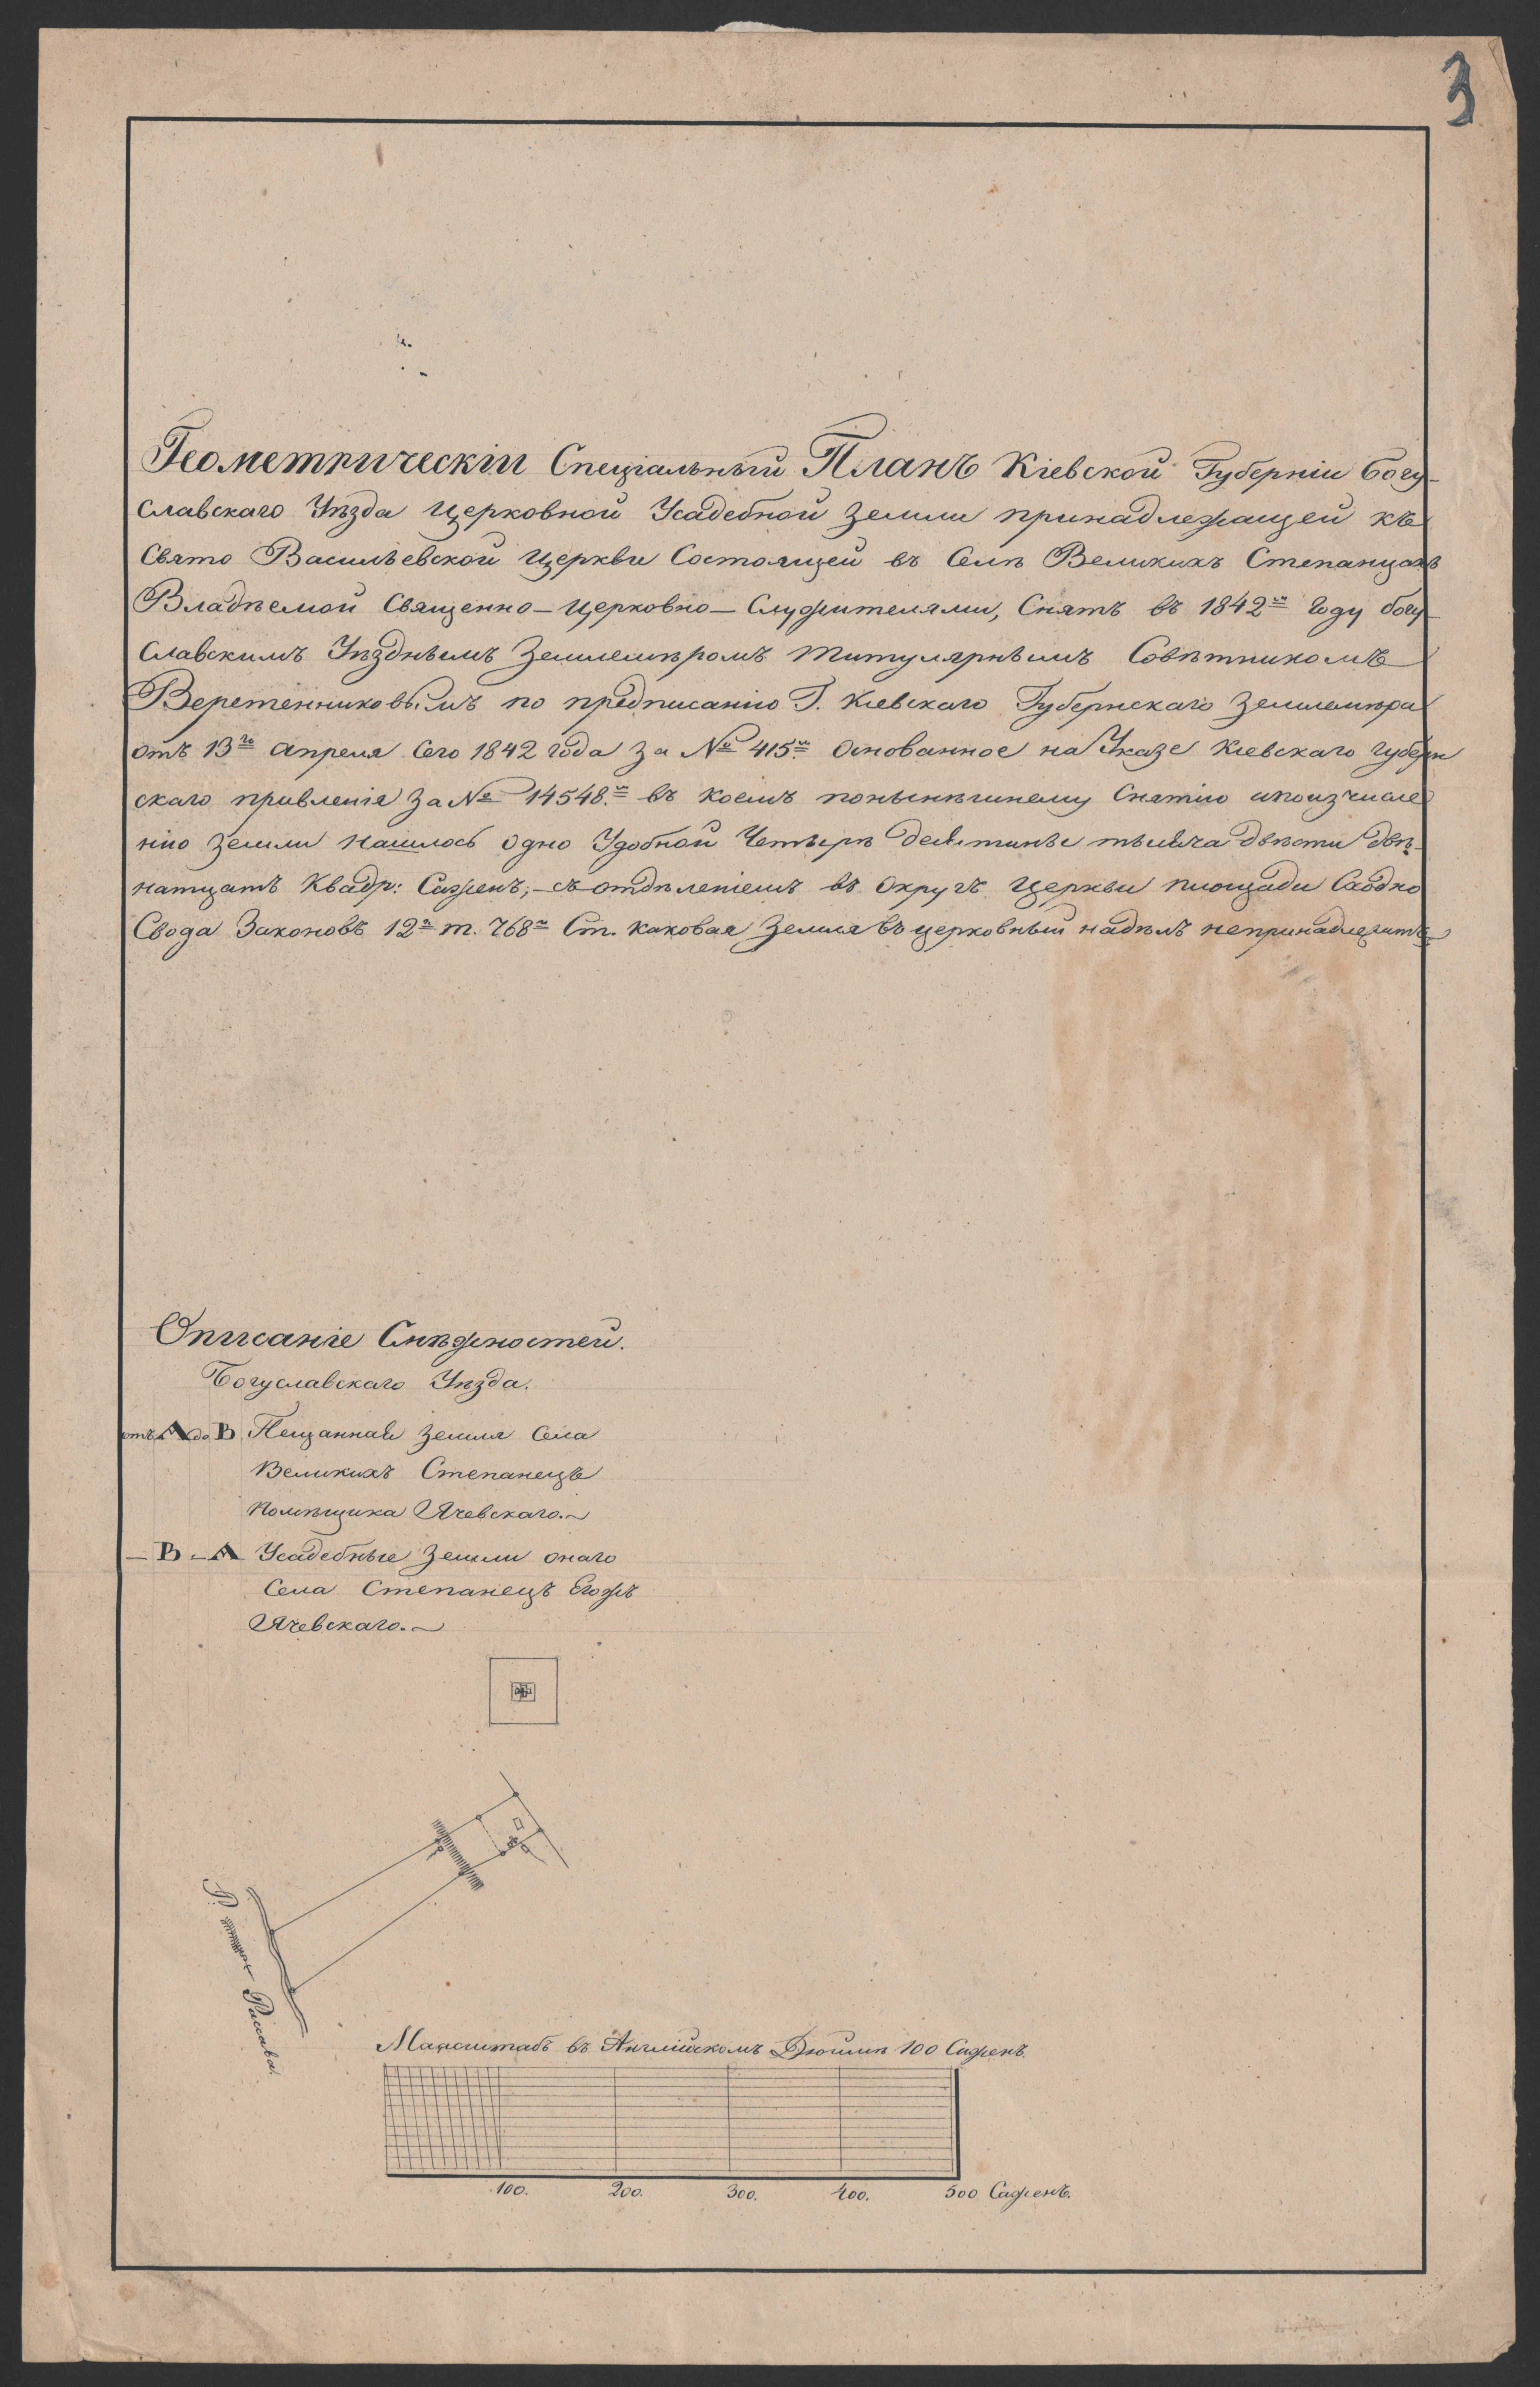 3
Геометрическій Спеціальный Планъ Кіевской Губерніи Богу-
славскаго Уѣзда церковной Усадебной земли принадлежащей къ
Свято Васильевской Церкви Состоящей въ Селѣ Великихъ Степанцахъ
Владѣемой Священно-Церковно-Служителями, Снятъ въ 1842м Году богу-
славскимъ Уѣзднымъ Землемѣромъ Титулярнымъ Совѣтникомъ
Веретенниковымъ по предписанію Г. Кіевскаго Губернскаго Землемѣра
отъ 13го апреля Сего 1842 года за № 415м Основанное на Указе Кіевскаго Губерн
скаго правленія За № 14548.м въ коемъ понынѣшнему Снятію ипоизчисле
нію земли нашлось одно Удобной Четыре десятины тысяча двѣсти двѣ-
натцать Квадр: Сажень; съ отдѣленіемъ въ округъ церкви площади Сходно
Свода Законовъ 12го т. 768й Ст. каковая Земля въ церковный надѣлъ непринадлежитъ
Описаніе Смѣжностей.
Богуславскаго Уѣзда.
отъ А до В Пещанная Земля Села
Великихъ Степанецъ
помѣщика Ячевскаго.
– В – А Усадебные Земли онаго
Села Степанецъ Егожъ
Ячевскаго.
Р
Рассава
Маасштабъ въ Англійскомъ Дюймѣ 100 Саженъ.
100. 200. 300. 400. 500 Саженъ.